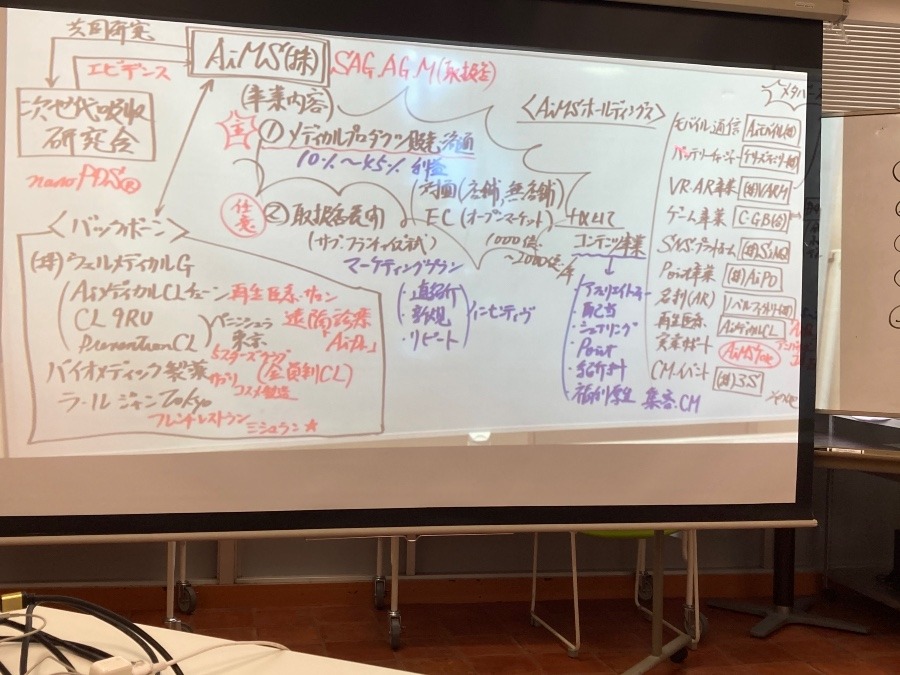 共同研究
エビデンス
次世代吸収
研究会
nano PDS®
AiMS(株) SAG.AG.M(取扱店)
(事業内容)
① メディカルプロダクツ販売流通
10%〜45% 利益
任意 ② 取扱店展開
(サブフランチャイズ式)
対面(店舗,無店舗)
EC(オープンマーケット)
1000億
〜2000億
マーケティングプラン
・直紹介
・新規
・リピート
インセンティヴ
<バックボーン>
(株)ウェルメディカルG
AiメディカルCLチェーン 再生医療・サロン
CL 9RU
PreventionCL
ペニンシュラ
東京
遠隔診療
5スターズクラブ
バイオメディック製薬 サプリ (会員制CL)
コスメ製造
ラール ジャン Tokyo
フレンチレストラン
ミシュラン★
<AiMSホールディングス>
コンテンツ事業
・アフィリエイト
・配当
・シェアリング
・Point
・紹介
・福利厚生 集客.CM
モバイル通信 Aiモバイル(株)
バッテリーチャージャー
VR.AR事業 (株)VARM
ゲーム事業 C.G.B(合)
SNSプラットホーム
Point事業 (株)AiPO
名刺(AR)
再生医療 AiメディカルCL
実業サポート
CMイベント (株)3S